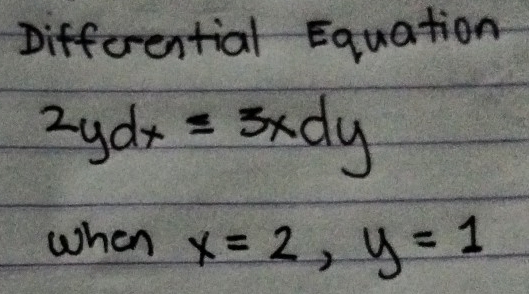 Differential Equation
2ydx = 3xdy
when x = 2, y = 1